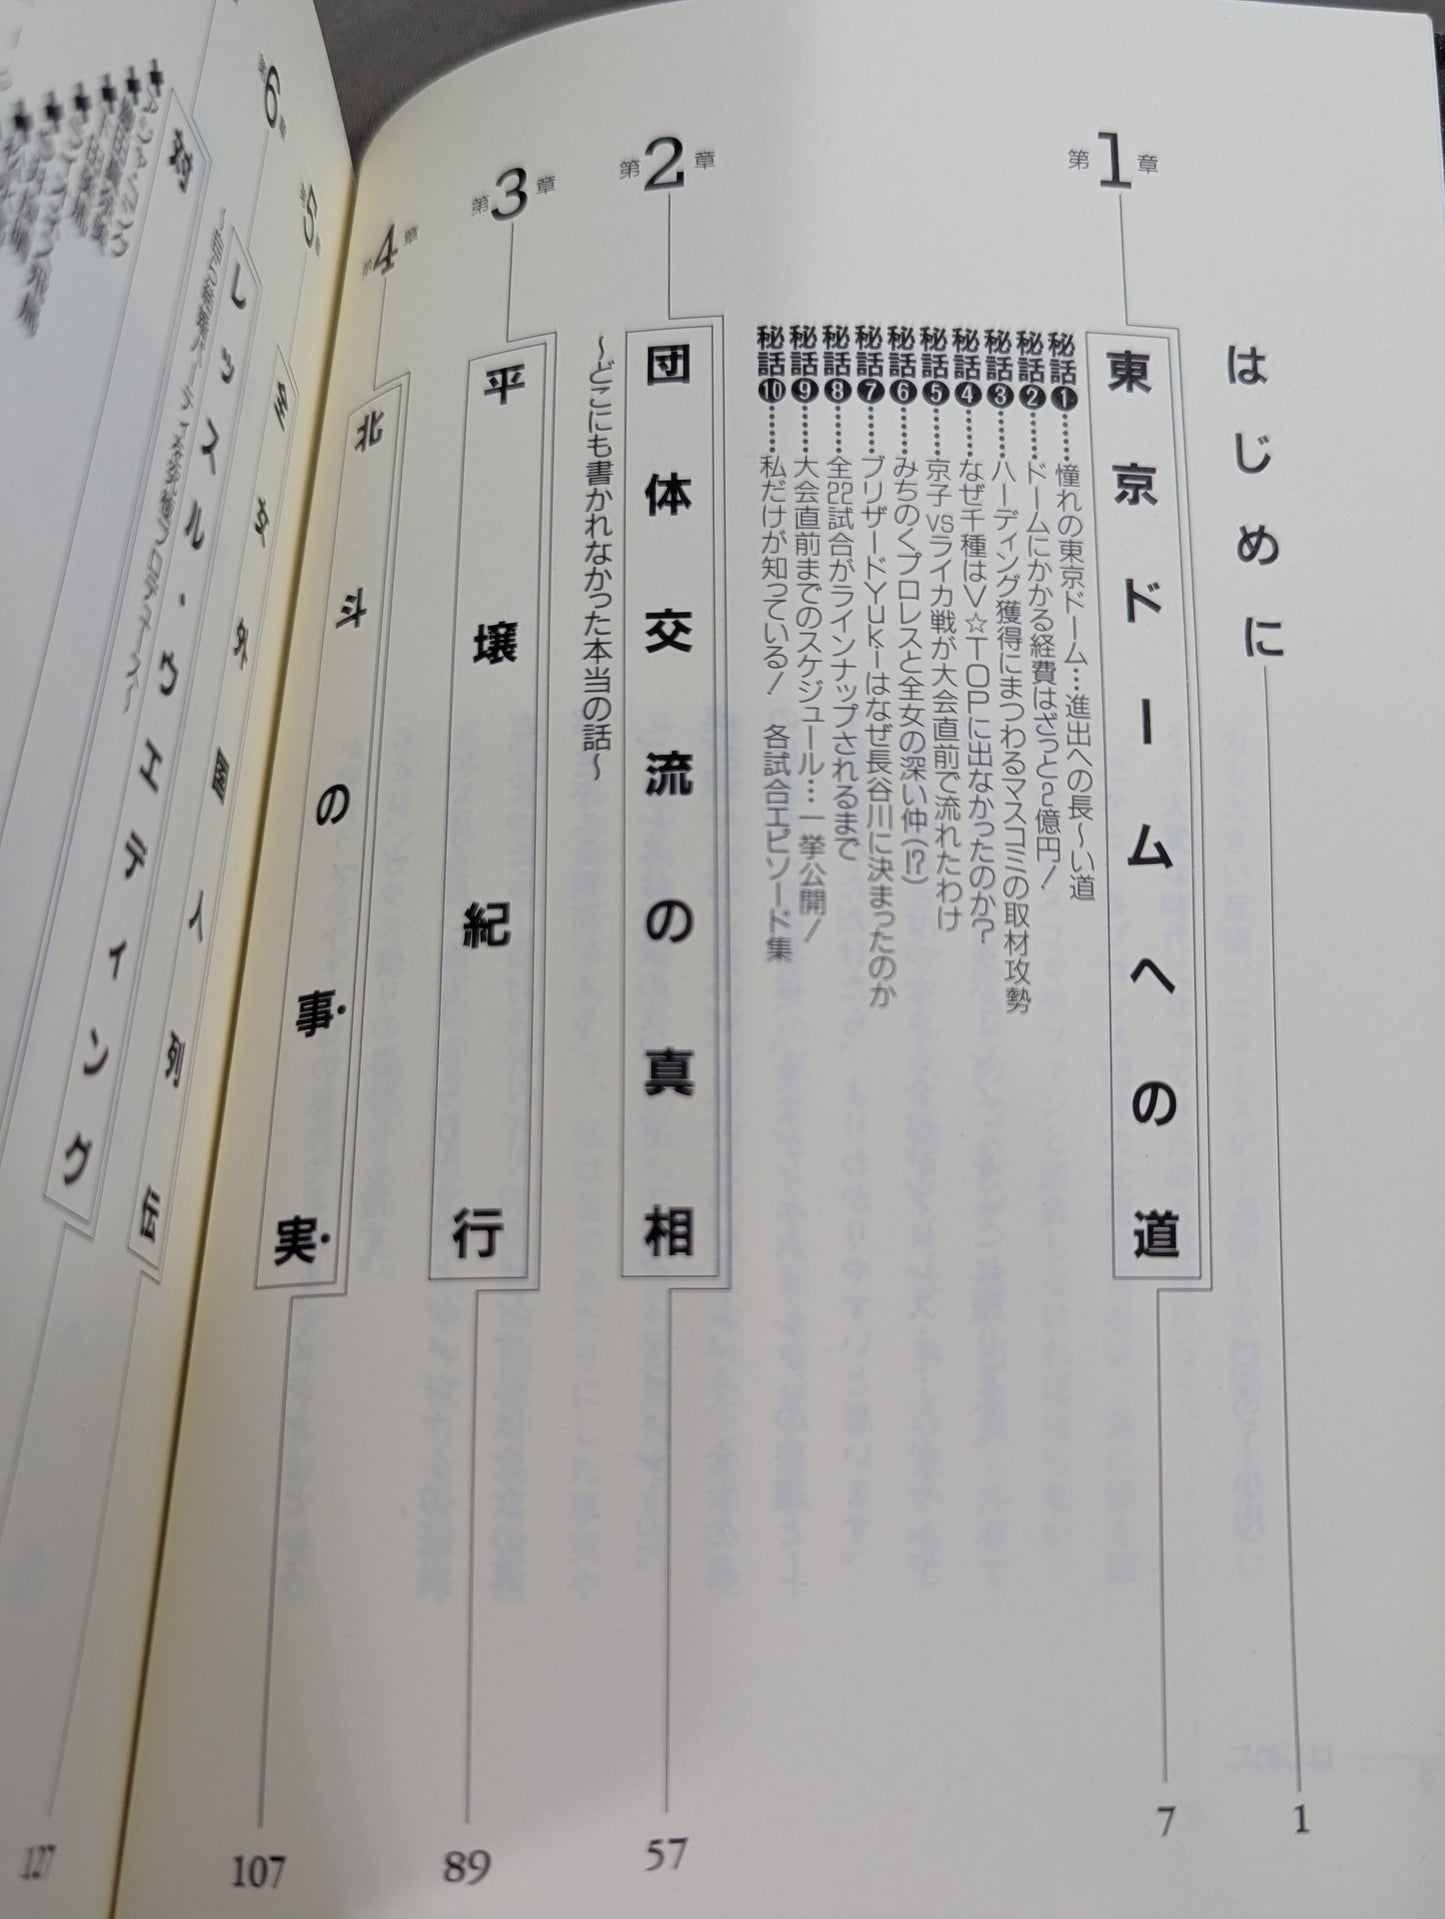 はじめに
1
第1章
東京ドームへの道
7
秘話❶……憧れの東京ドーム…進出への長〜い道
秘話❷……ドームにかかる経費はざっと2億円！
秘話❸……ハーディング獲得にまつわるマスコミの取材攻勢
秘話❹……なぜ千種はV☆TOPに出なかったのか？
秘話❺……京子VSライカ戦が大会直前で流れたわけ
秘話❻……みちのくプロレスと全女の深い仲(!?)
秘話❼……ブリザードYuk-iはなぜ長谷川に決まったのか
秘話❽……全22試合がラインナップされるまで
秘話❾……大会直前までのスケジュール…一挙公開！
秘話❿……私だけが知っている！　各試合エピソード集
第2章
団体交流の真相
〜どこにも書かれなかった本当の話〜
57
第3章
平壌紀行
89
第4章
北斗の事実
107
第5章
全女外国人列伝
127
第6章
レッスル・ウエディング